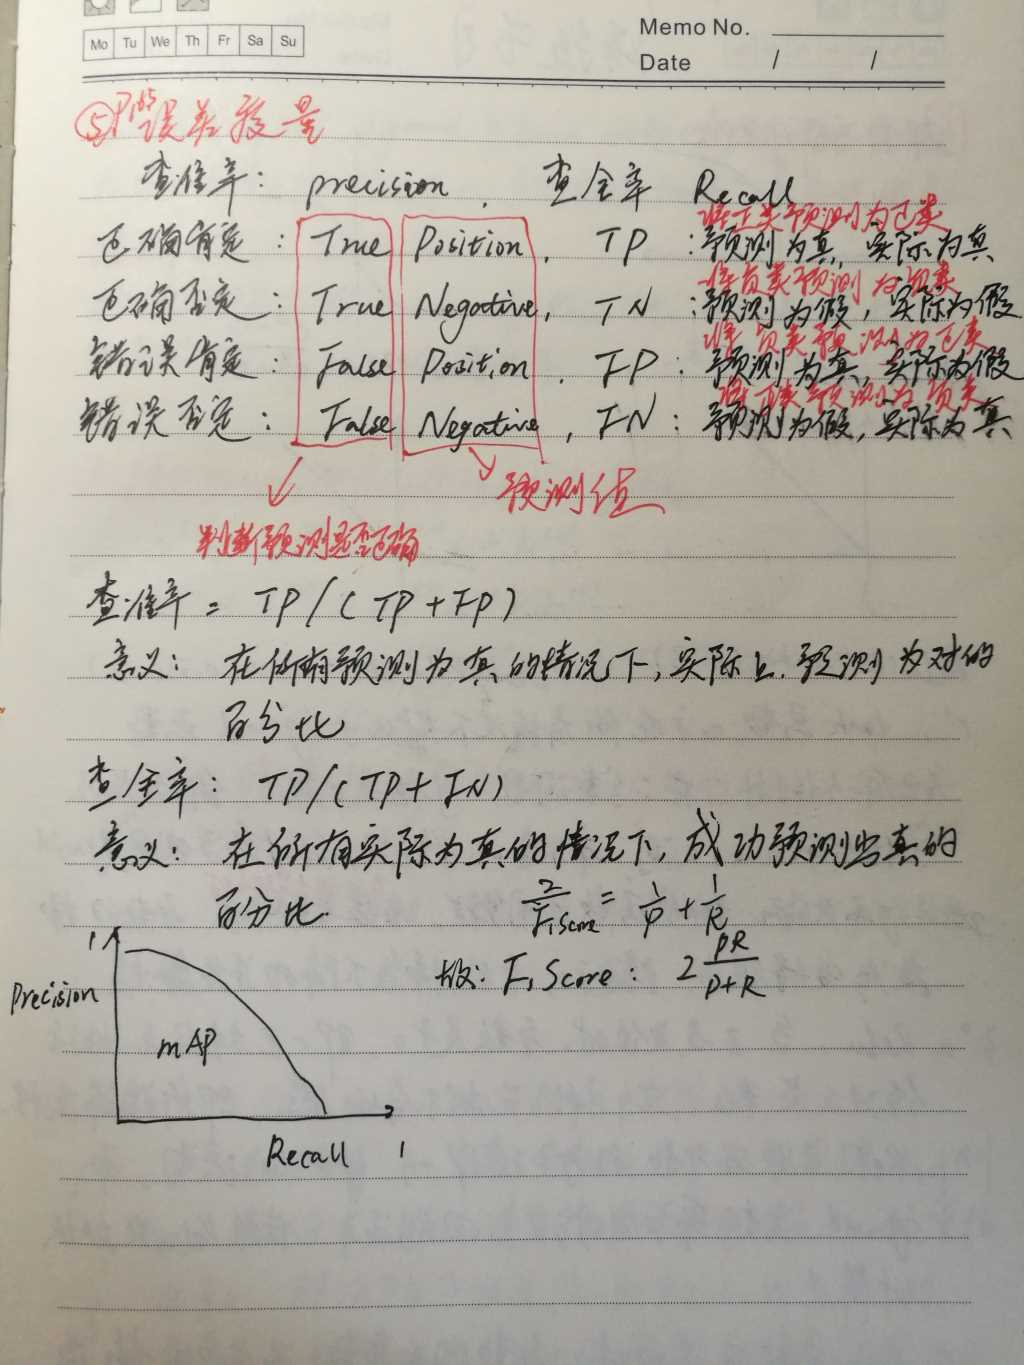 Memo No.
Mo Tu We Th Fr Sa Su
Date / /
⑤P165 误差度量
查准率: precision, 查全率 Recall
将正类预测为正类
正确肯定: True Position, TP: 预测为真, 实际为真
将负类预测为负类
正确否定: True Negative, TN: 预测为假, 实际为假
将负类预测为正类
错误肯定: False Position, FP: 预测为真, 实际为假
将正类预测为负类
错误否定: False Negative, FN: 预测为假, 实际为真
预测值
判断预测是否正确
查准率 = TP/(TP+FP)
意义: 在所有预测为真的情况下, 实际上, 预测为对的
百分比
查全率: TP/(TP+FN)
意义: 在所有实际为真的情况下, 成功预测出真的
百分比.
2/F₁score = 1/P + 1/R
故: F₁Score: 2 PR/P+R
1
Precision
mAP
Recall 1